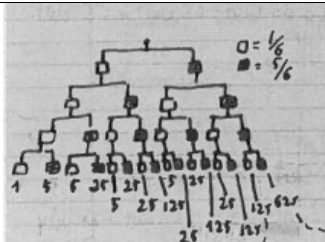 □ = 1/6
■ = 5/6
1 5 5 25 25 5 25
5 25 125 25 625
125 125
25